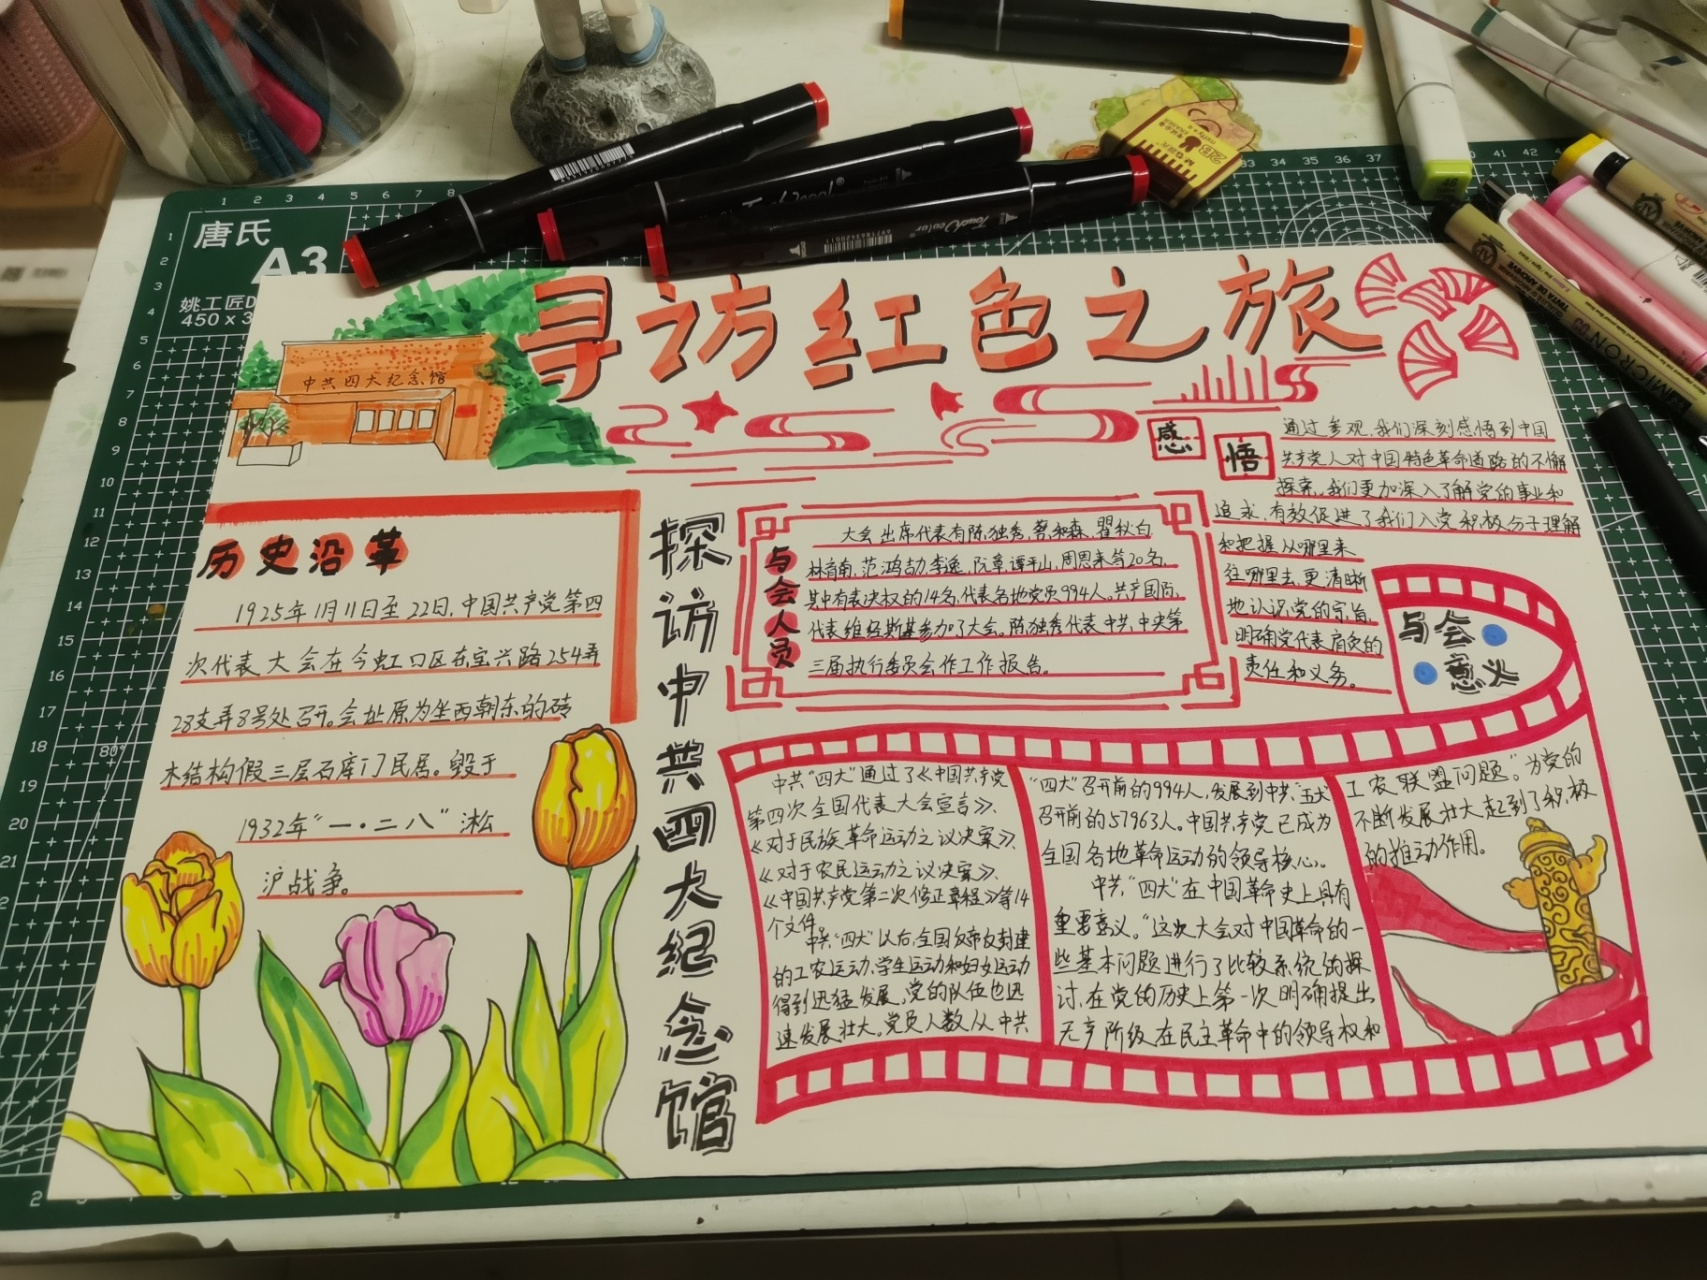 唐氏
A3
姚工匠D
寻访红色之旅
中共四大纪念馆
历史沿革
1925年1月11日至22日,中国共产党第四
次代表大会在今虹口区东宝兴路254弄
28支弄8号处召开。会址原为坐西朝东的砖
木结构假三层石库门民居。毁于
1932年“一·二八”淞
沪战争。
探访中共四大纪念馆
与会人员
大会出席代表有陈独秀,蔡和森、瞿秋白
林育南,范鸿劼,李逸,阮章,谭平山,周恩来等20名,
其中有表决权的14名,代表各地党员994人。共产国际
代表维经斯基参加了大会。陈独秀代表中共中央第
三届执行委员会作工作报告。
感悟
通过参观,我们深刻感悟到中国
共产党人对中国特色革命道路的不懈
探索。我们更加深入了解党的事业和
追求,有效促进了我们入党积极分子理解
和把握从哪里来
往哪里去,更清晰
地认识党的宗旨,
明确党代表肩负的
责任和义务。
与会
意义
中共“四大”通过了《中国共产党
第四次全国代表大会宣言》、
《对于民族革命运动之议决案》、
《对于农民运动之议决案》、
《中国共产党第二次修正章程》等14
个文件。
中共“四大”以后,全国反帝反封建
的工农运动,学生运动和妇女运动
得到迅猛发展,党的队伍也迅
速发展壮大。党员人数从中共
“四大”召开前的994人,发展到中共“五大”
召开前的57963人。中国共产党已成为
全国各地革命运动的领导核心。
中共“四大”在中国革命史上具有
重要意义。“这次大会对中国革命的一
些基本问题进行了比较系统的探
讨,在党的历史上第一次明确提出
无产阶级在民主革命中的领导权和
工农联盟问题。”为党的
不断发展壮大起到了积极
的推动作用。